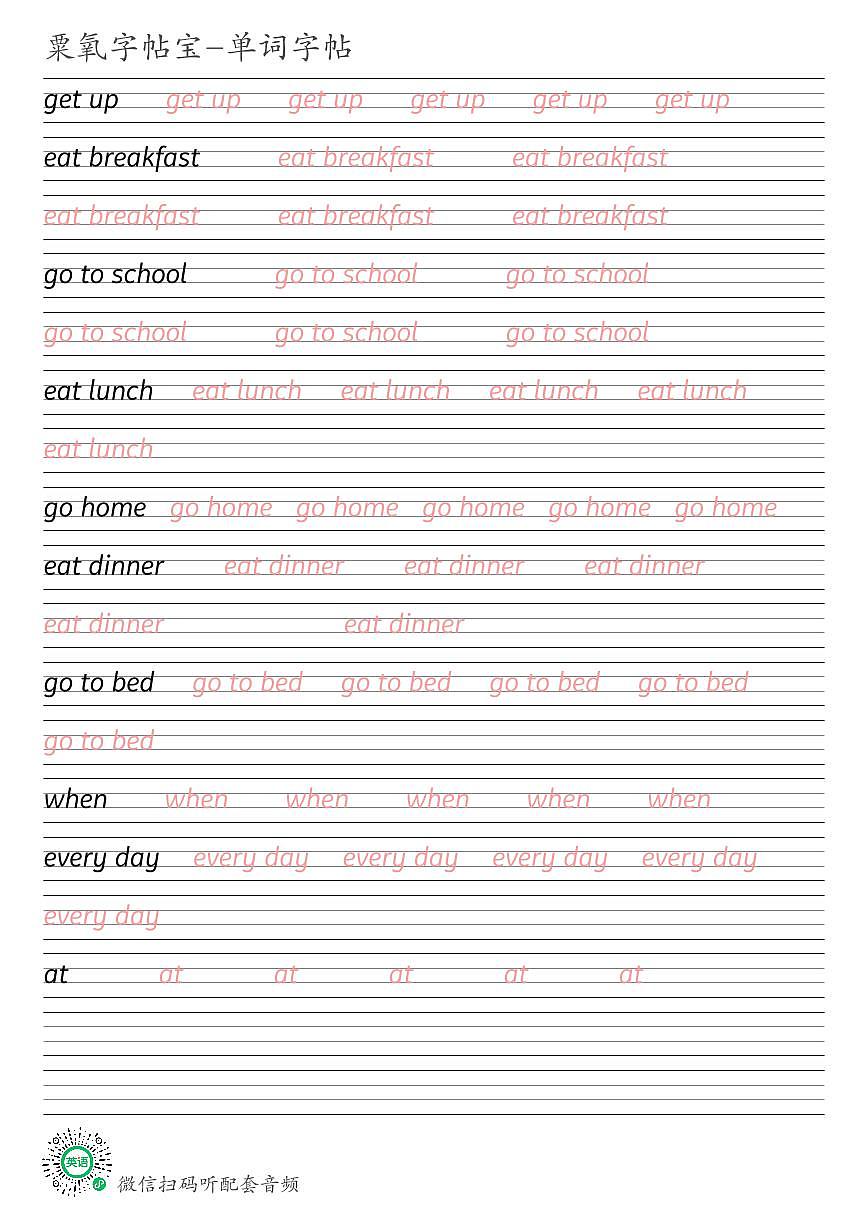 粟氧字帖宝-单词字帖
get up get up get up get up get up get up
eat breakfast eat breakfast eat breakfast
eat breakfast eat breakfast eat breakfast
go to school go to school go to school
go to school go to school go to school
eat lunch eat lunch eat lunch eat lunch eat lunch
eat lunch
go home go home go home go home go home go home
eat dinner eat dinner eat dinner eat dinner
eat dinner eat dinner
go to bed go to bed go to bed go to bed go to bed
go to bed
when when when when when when
every day every day every day every day every day
every day
at at at at at at
英语
微信扫码听配套音频